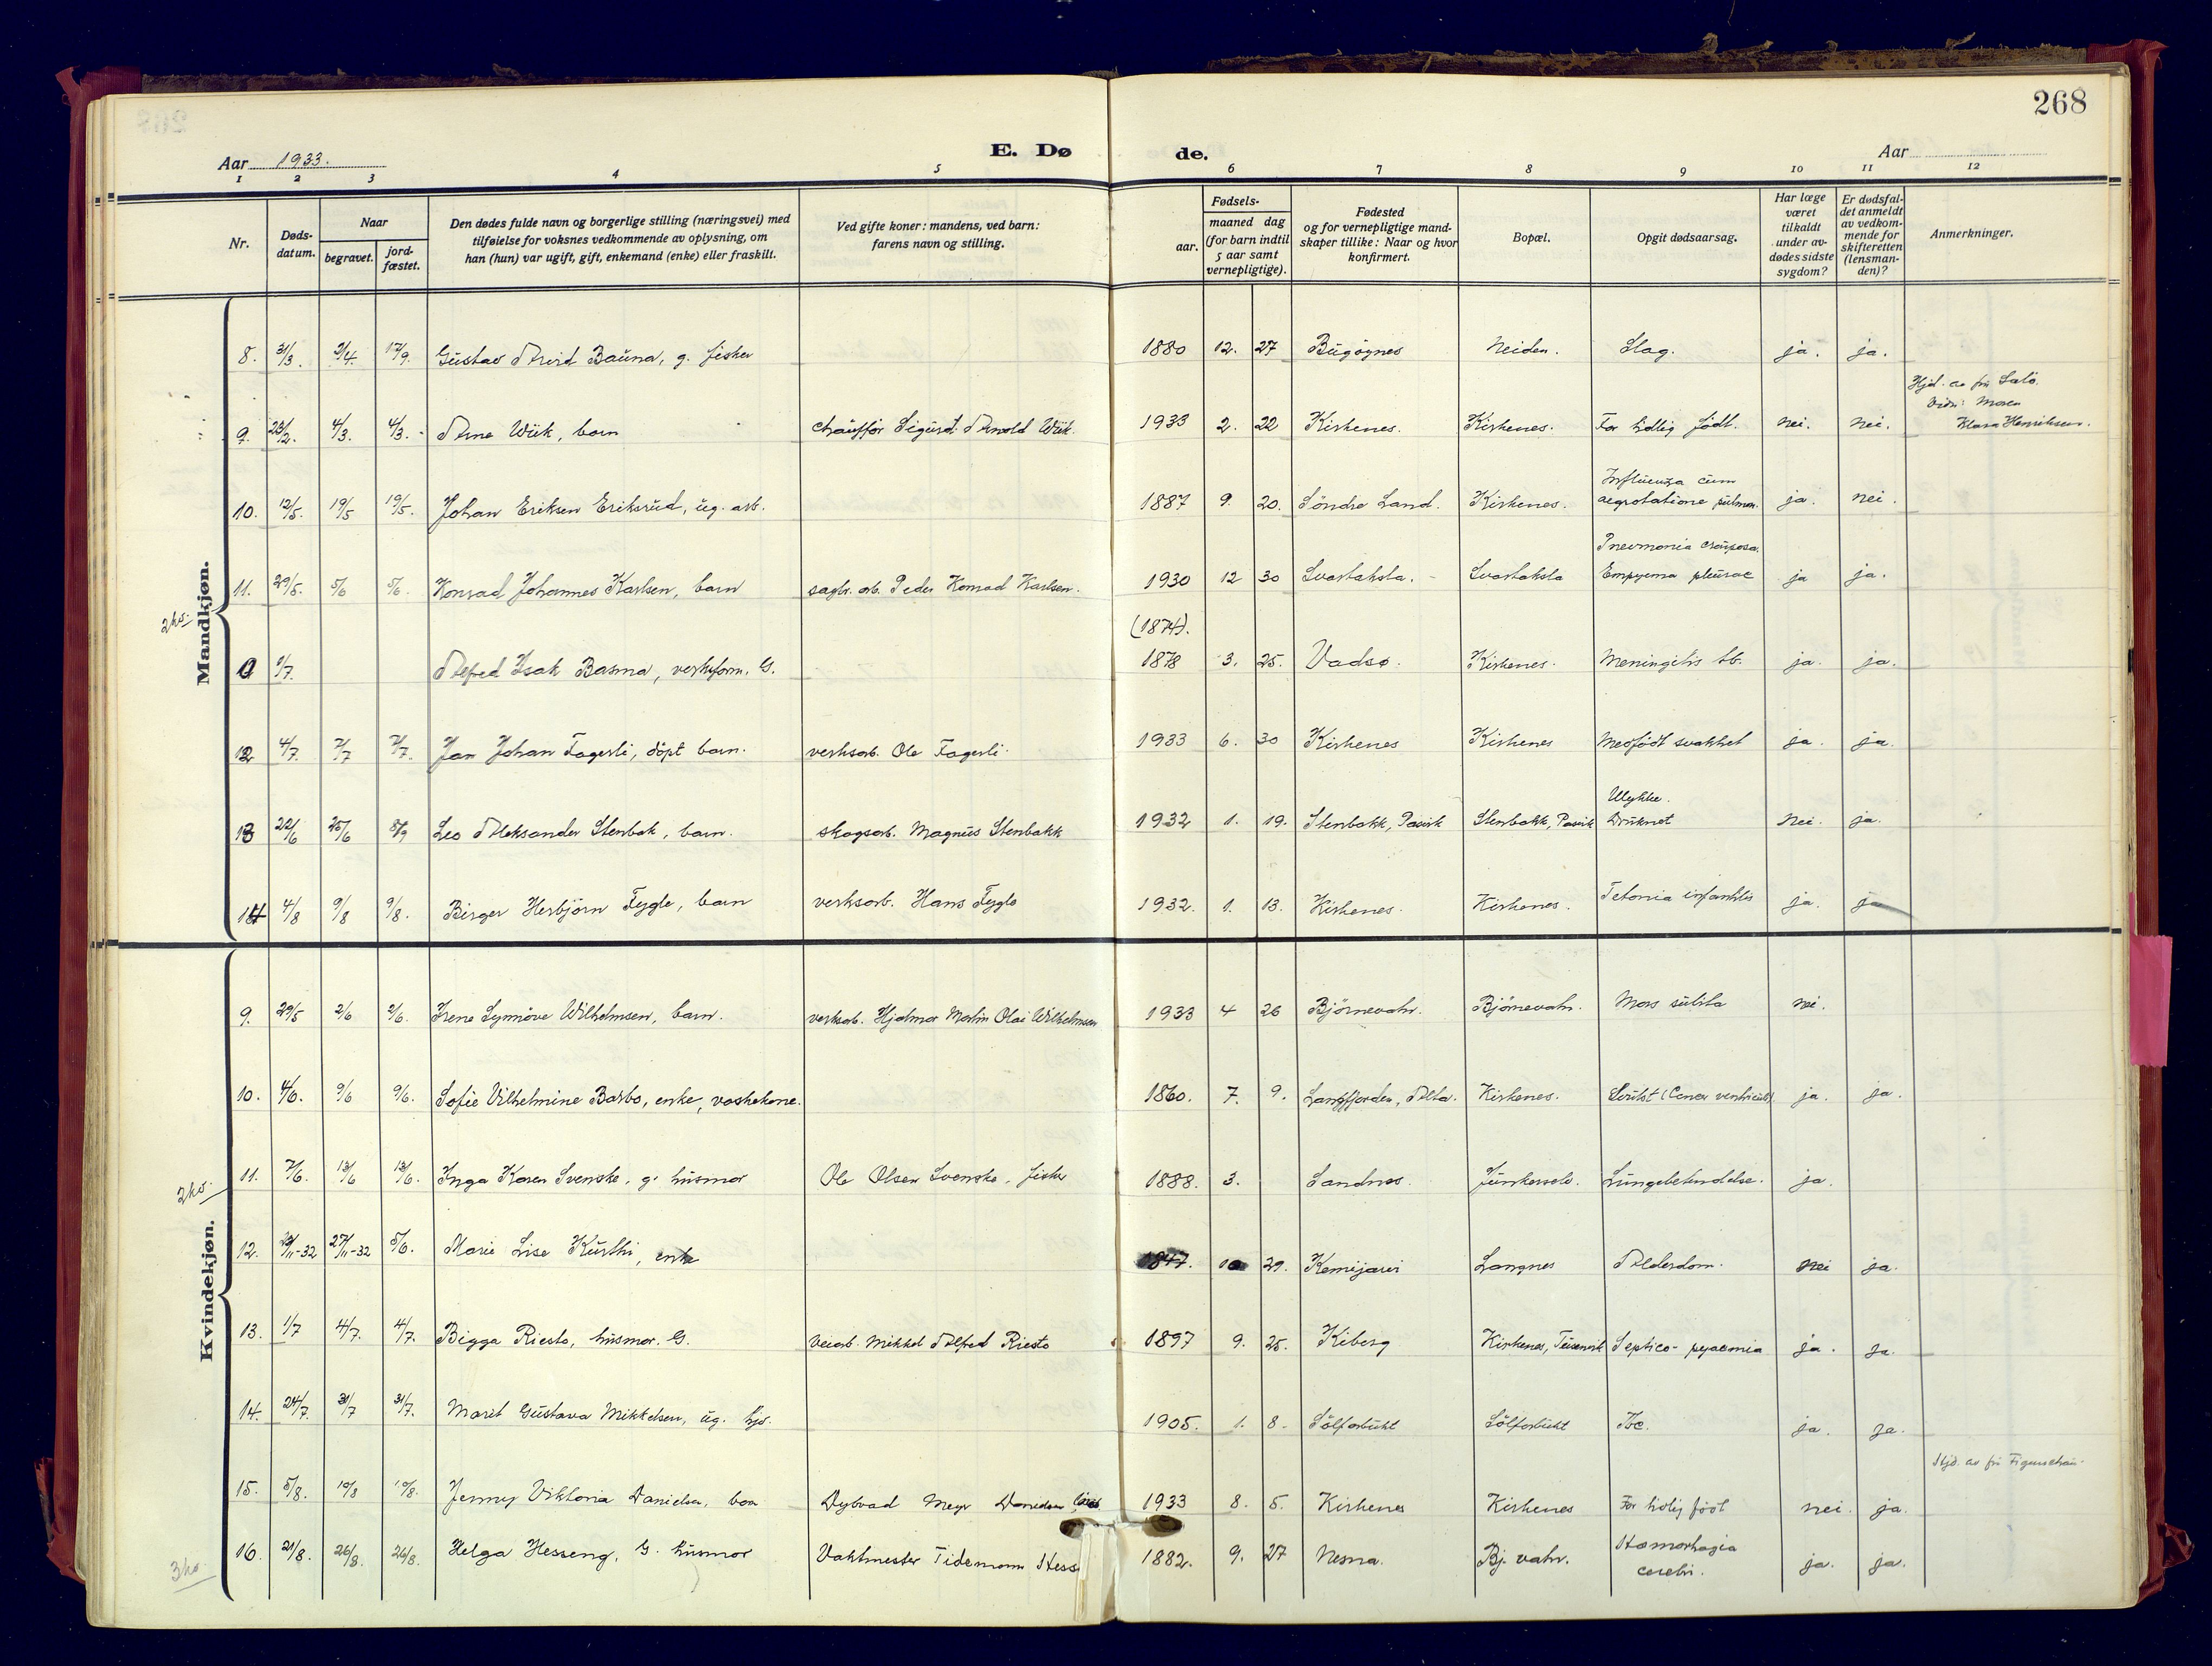 268
Aar 1933.
E. Dø de.
Aar
1 2 3 4 5 6 7 8 9 10 11 12
Nr.
Døds-datum.
Naar
begravet.
jord-fæstet.
Den dødes fulde navn og borgerlige stilling (næringsvei) med tilføielse for voksnes vedkommende av oplysning, om han (hun) var ugift, gift, enkemand (enke) eller fraskilt.
Ved gifte koner: mandens, ved barn: farens navn og stilling.
Fødsels-
aar.
maaned dag (for barn indtil 5 aar samt vernepligtige).
Fødested og for vernepligtige mandskaper tillike: Naar og hvor konfirmert.
Bopæl.
Opgit dødsaarsag.
Har læge været tilkaldt under avdødes sidste sygdom?
Er dødsfaldet anmeldt av vedkommende for skifteretten (lensmanden)?
Anmerkninger.
Mandkjøn.
8. 31/3. 2/4. 17/9. Gustav Arvid Bauna, g. fisker 1880 12. 27 Bugøynes Neiden. Slag. ja. ja.
9. 23/2. 4/3. 4/3. Arne Wiik, barn chauffør Sigurd Arnold Wiik. 1933 2. 22 Kirkenes. Kirkenes. For tidlig født. nei. nei. Hjd. av fru Salo. Vidn: Moren Klara Henriksen.
10. 12/5. 19/5 19/5. Johan Eriksen Eriksrud, ug. arb. 1887 9. 20. Søndre Land. Kirkenes. Influenza cum aegrotatione pulmon. ja. nei.
11. 29/5. 5/6 5/6. Konrad Johannes Karlsen, barn sagbr. arb. Peder Konrad Karlsen. 1930 12 30 Svartaksla. Svartaksla Pneumonia crouposa. Empyema pleurae ja ja.
2 ko.
0 1/7. Alfred Isak Basma, verksform. G. (1874). 1878 3. 25. Vadsø. Kirkenes. Meningitis tb. ja. ja.
12 4/7. 7/7 7/7. Jan Johan Fagerli, døpt barn. verksarb. Ole Fagerli. 1933 6. 30 Kirkenes Kirkenes Medfødt svakhet ja. ja.
13 22/6 25/6 3/9 Leo Aleksander Stenbak, barn. skogsarb. Magnus Stenbakk 1932 1. 19. Stenbakk, Pasvik Stenbakk, Pasvik Ulykke. Druknet Nei. ja.
14 4/8 9/8 9/8. Birger Herbjörn Fygle, barn verksarb. Hans Fygle 1932. 1. 13. Kirkenes. Kirkenes. Tetania infantilis ja. ja
Kvindekjøn.
9. 29/5 2/6 2/6. Irene Synnöve Wilhelmsen, barn. verksarb. Hjalmar Martin Olai Wilhelmsen 1933 4 26 Björnevatn. Björnevatn. Mors subita nei.
10. 4/6. 9/6 9/6. Sofie Vilhelmine Barbo, enke, vaskekone. 1860. 7. 9. Langfjorden, Alta. Kirkenes. Svulst (Cancer ventriculi) ja. ja.
11. 7/6. 13/6 13/6. Inga Karen Svenske, g. husmor Ole Olsen Svenske, fisker 1888. 3. Sandnes. Junkerselv. Lungebetendelse. ja.
2 ko.
12. /11-32 27/11-32 5/6. Marie Lise Kurthi, enke 1847. 10 29. Kemijarvi Langnes Alderdom. nei ja.
13. 1/7 4/7. 4/7. Bigga Riesto, husmor. G. Veiarb. Mikkel Alfred Riesto 1897 9. 25. Kiberg Kirkenes, Septico-pyaemia ja. ja.
14. 24/7. 31/7 31/7. Marit Gustava Mikkelsen, ug. hjv. 1905. 1. 8. Sölferbukt Sölferbukt Tbc. ja. ja.
15. 5/8. 10/8 10/8. Jenny Viktoria Danielsen, barn Dybvad Meyer Danielsen 1933 8. 5. Kirkenes Kirkenes For tidlig född nei. ja. Hjd. av fru Figenschau.
16. 21/8. 26/8. 26/8. Helga Hesseng, G. husmor Vaktmester Tidemann Hess 1882. 9. 27 Nesna. Bj. vatn. Hæmorhagia cerebri. ja. ja.
3 ko.